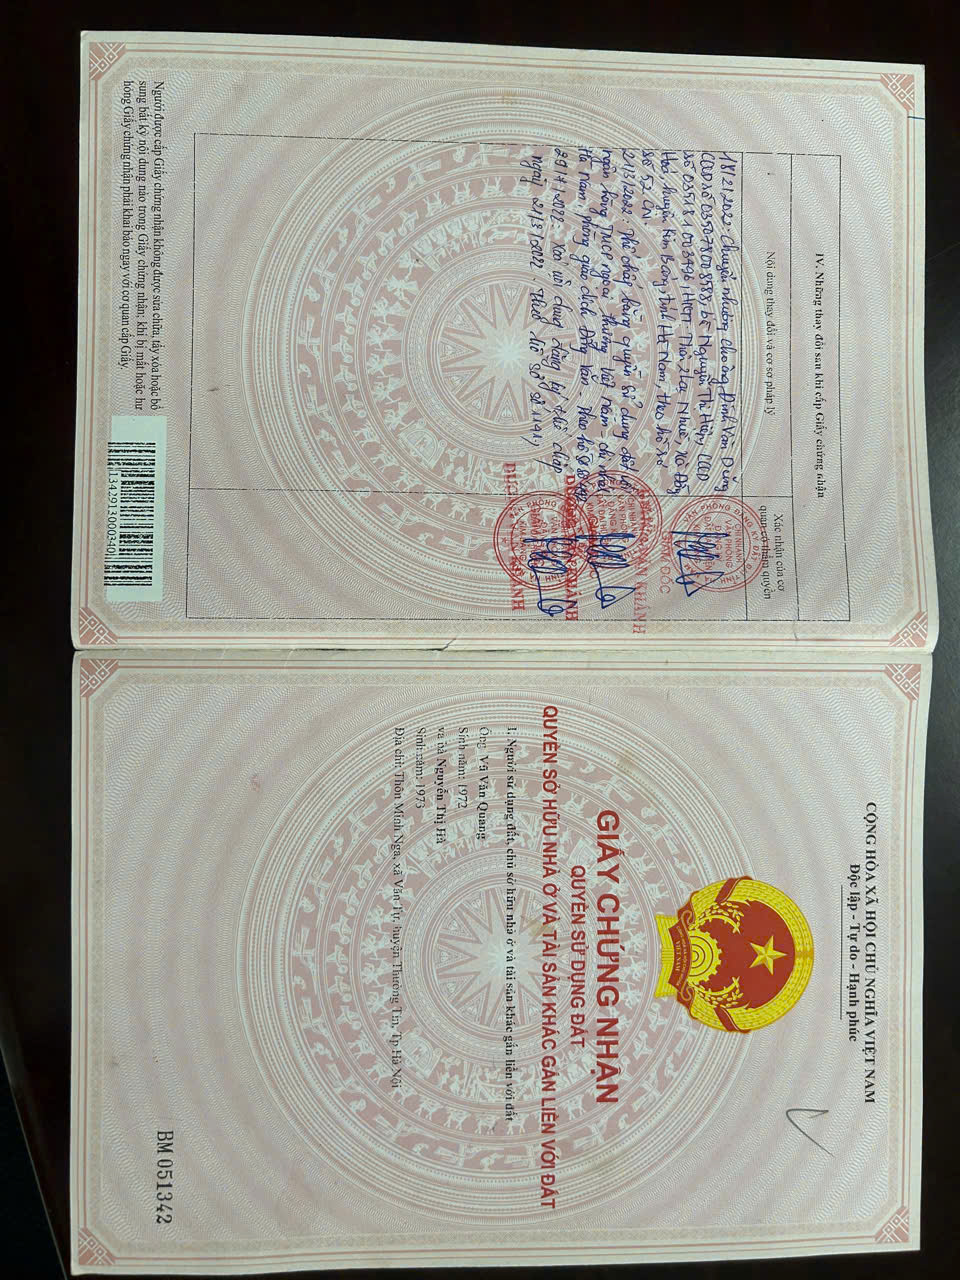 IV. Những thay đổi sau khi cấp Giấy chứng nhận
Nội dung thay đổi và cơ sở pháp lý
Xác nhận của cơ
quan có thẩm quyền
18/2/2022. Chuyển nhượng cho ông Đinh Văn Dũng
CCCD số 035078008988 bà Nguyễn Thị Hiện CCCD
số 035181003496 HKTT: Thôn
Hoà huyện Kim Bảng, tỉnh Hà Nam, theo hồ sơ
số 52 CN.
21/3/2022. Thế chấp bằng quyền sử dụng đất
ngân hàng TMCP ngoại thương Việt Nam - chi nhánh
Hà Nam phòng giao dịch Đồng Văn. theo hồ sơ
29/7/2022. Xoá nội dung đăng ký thế chấp
ngày 21/3/2022 theo hồ sơ số
Người được cấp Giấy chứng nhận không được sửa chữa, tẩy xóa hoặc bổ
sung bất kỳ nội dung nào trong Giấy chứng nhận; khi bị mất hoặc hư
hỏng Giấy chứng nhận phải khai báo ngay với cơ quan cấp Giấy.
134291300034​01
CỘNG HÒA XÃ HỘI CHỦ NGHĨA VIỆT NAM
Độc lập - Tự do - Hạnh phúc
VIỆT NAM
GIẤY CHỨNG NHẬN
QUYỀN SỬ DỤNG ĐẤT
QUYỀN SỞ HỮU NHÀ Ở VÀ TÀI SẢN KHÁC GẮN LIỀN VỚI ĐẤT
I. Người sử dụng đất, chủ sở hữu nhà ở và tài sản khác gắn liền với đất
Ông: Vũ Văn Quang
Sinh năm: 1972
và bà Nguyễn Thị Hà
Sinh năm: 1973
Địa chỉ: Thôn Minh Nga, xã Văn Tự, huyện Thường Tín, Tp Hà Nội
BM 051342